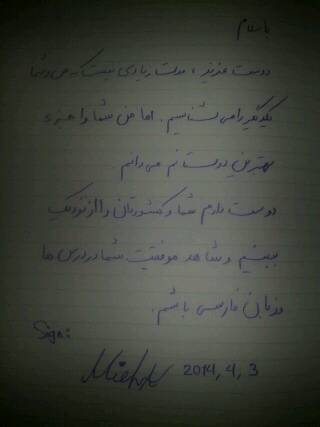 با سلام
دوست عزیز، مدت زیادی نیست که من و شما
یکدیگر را می شناسیم. اما من شما را جزء
بهترین دوستانم می دانم
دوست دارم شما و کشورتان را از نزدیک
ببینم و شاهد موفقیت شما در درس ها
و زبان فارسی باشم.
Sign:
2014, 4, 3